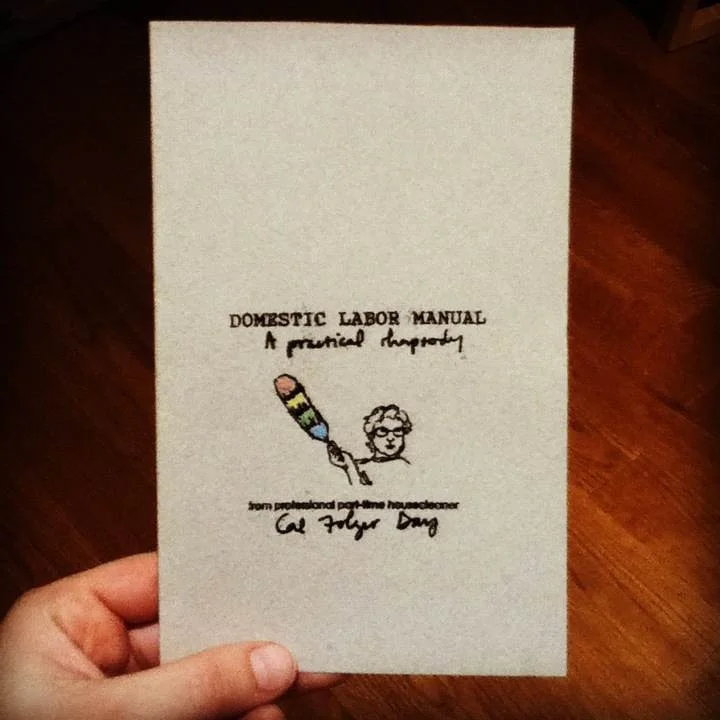 DOMESTIC LABOR MANUAL
A practical rhapsody
from professional part-time housecleaner
Cal Folger Day